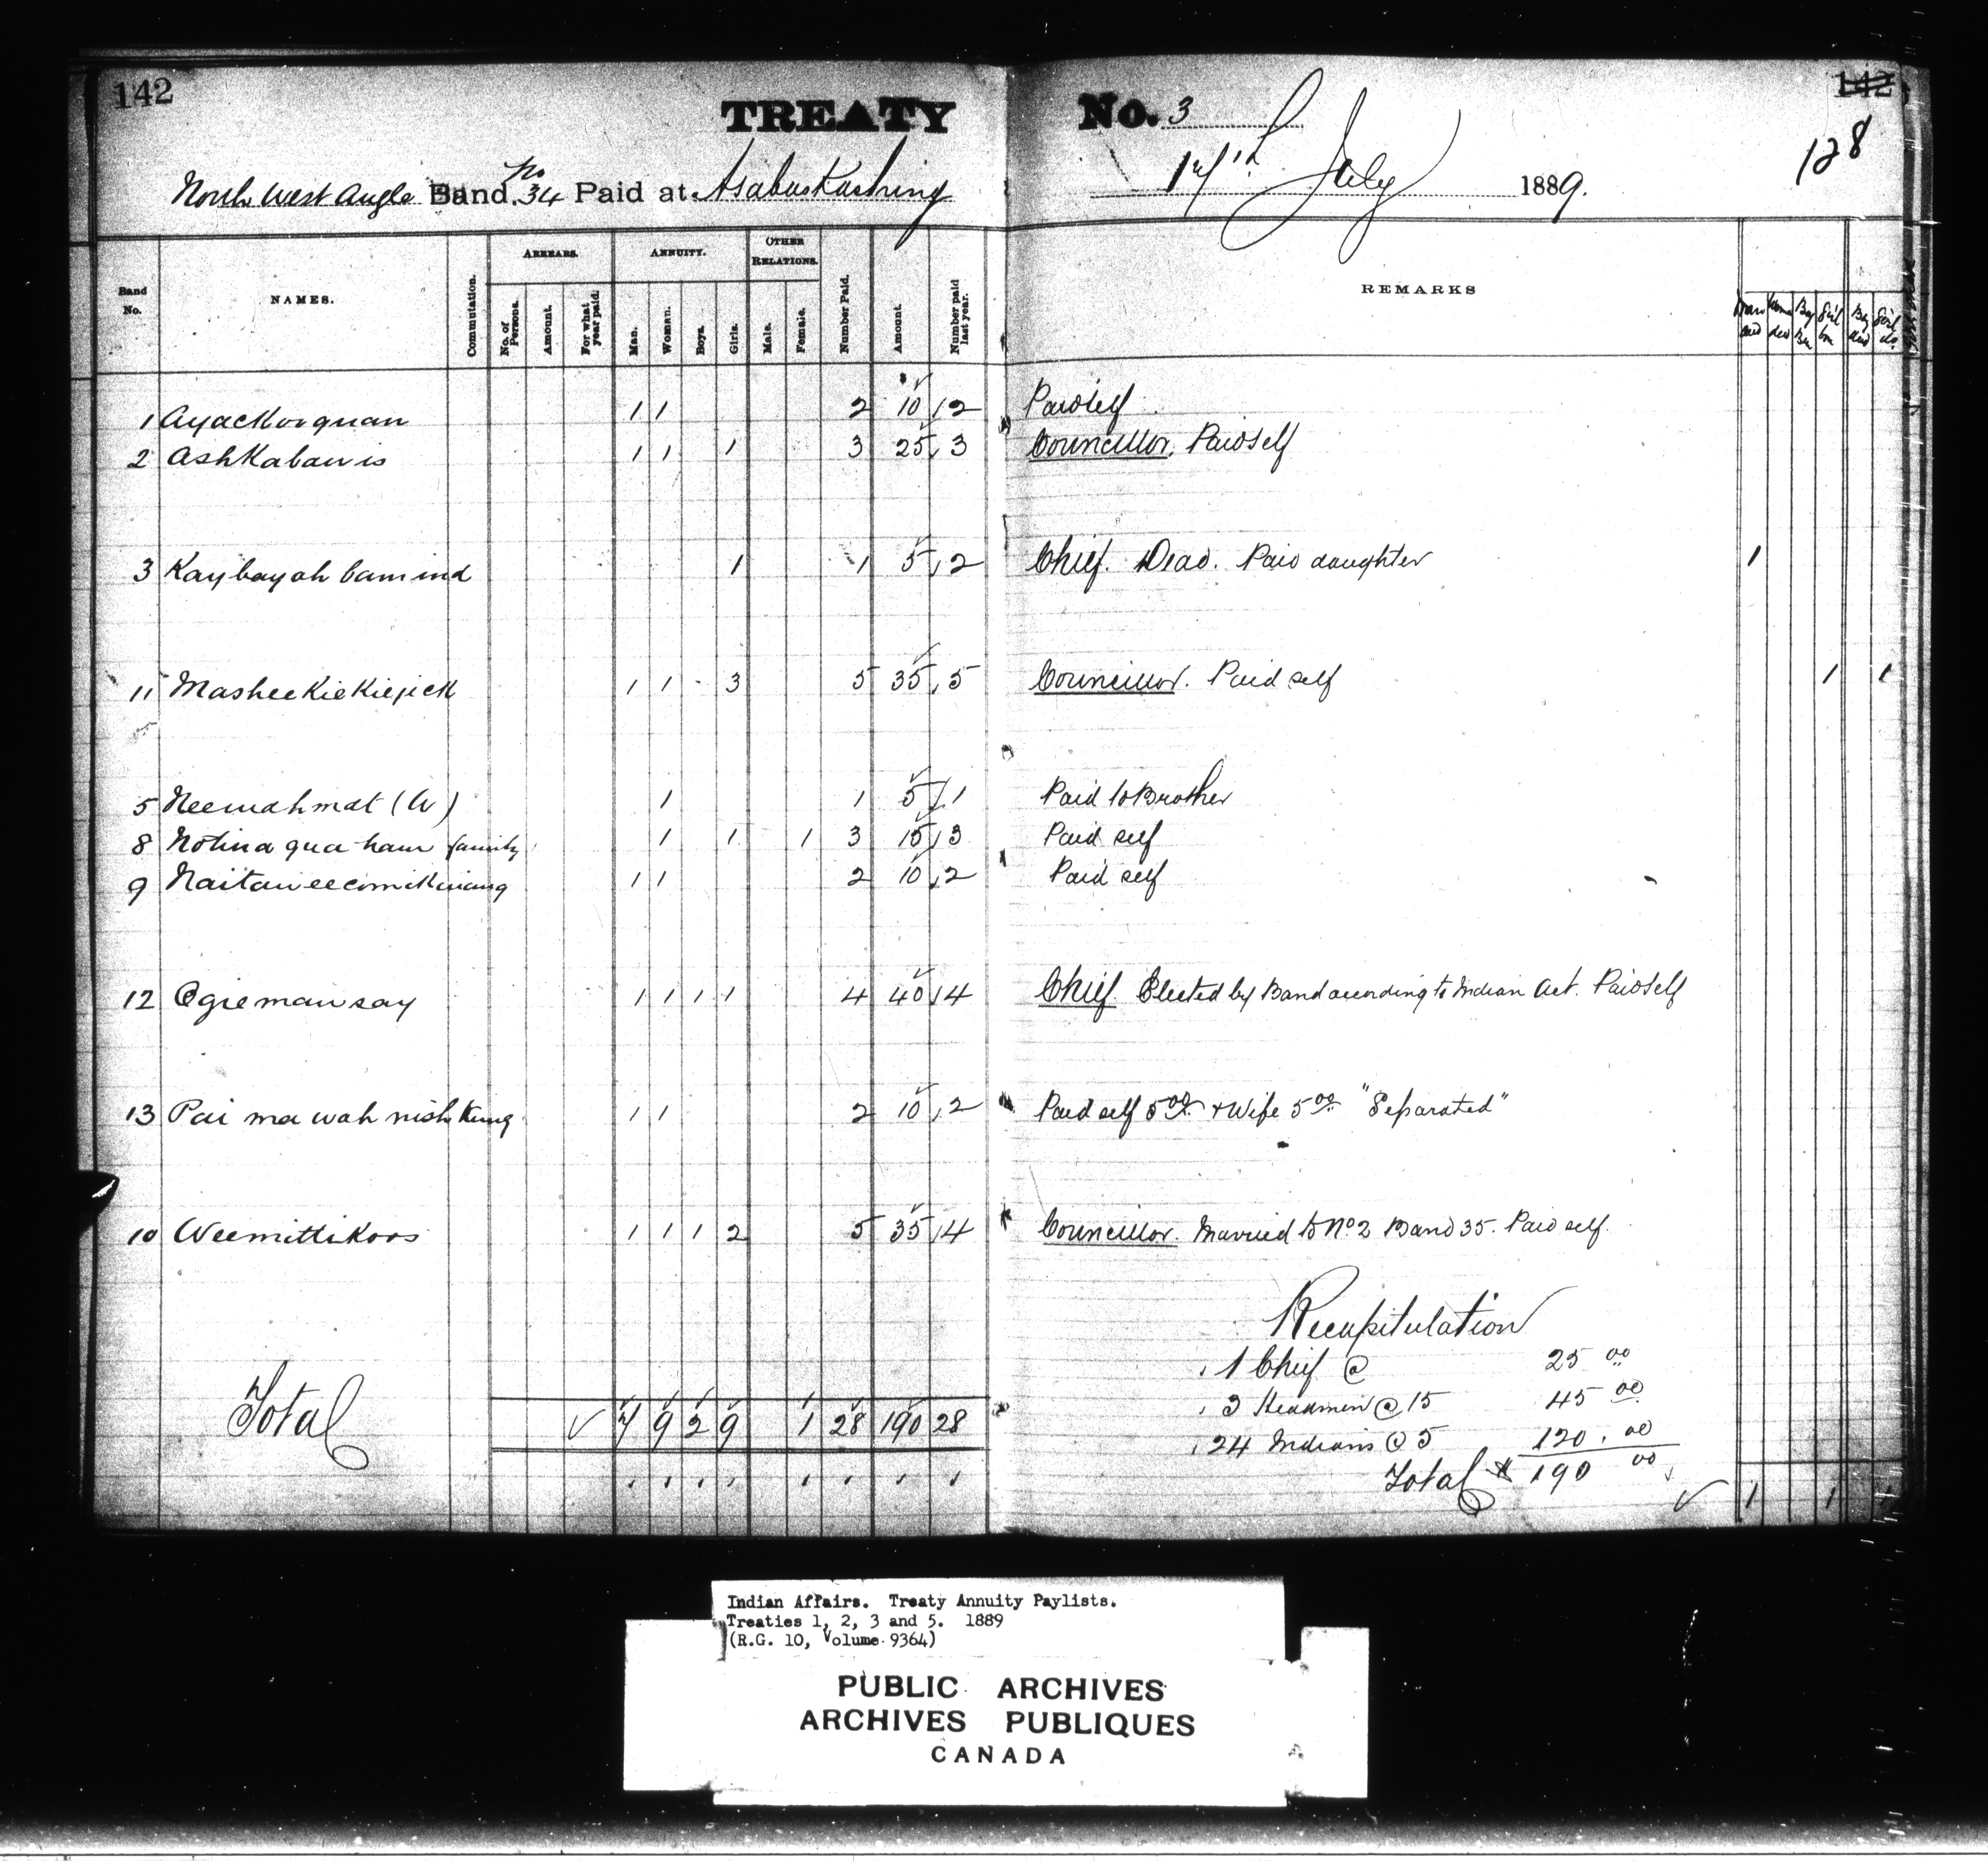 142
TREATY No. 3
142
128
North West Angle Band No 34 Paid at Asabaskashing
17th July 1889.
Band No.
NAMES.
Commutation.
ARREARS.
No. of Persons.
Amount.
For what year paid.
ANNUITY.
Man.
Woman.
Boys.
Girls.
OTHER RELATIONS.
Male.
Female.
Number Paid.
Amount.
Number paid last year.
REMARKS
1 Ayackooquan 1 1 2 10 2 Paid self
2 Ashkabawis 1 1 1 3 25 3 Councillor. Paid self
3 Kaybayahbamind 1 1 5 2 Chief. Dead. Paid daughter 1
11 Masheekiekiejick 1 1 3 5 35 5 Councillor. Paid self 1 1
5 Neewahmat (W) 1 1 5 1 Paid to Brother
8 Notinaquaham family 1 1 1 3 15 3 Paid self
9 Naitaweecomikwang 1 1 2 10 2 Paid self
12 Ogiemawsay 1 1 1 1 4 40 4 Chief Elected by Band according to Indian Act. Paid self
13 Pai ma wah nishkung 1 1 2 10 2 Paid self 5 00 + Wife 5 00 "Separated"
10 Weemittikoos 1 1 1 2 5 35 4 Councillor. Married to No 2 Band 35. Paid self.
Recapitulation
1 Chief @ 25 00
3 Headmen @ 15 45 00
24 Indians @ 5 120.00
Total $ 190 00
Total 7 9 2 9 1 28 190 28
1 1
Indian Affairs. Treaty Annuity Paylists.
Treaties 1, 2, 3 and 5. 1889
(R.G. 10, Volume 9364)
PUBLIC ARCHIVES
ARCHIVES PUBLIQUES
CANADA